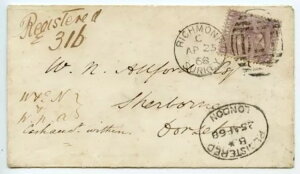 Registered
316
RICHMOND
C
AP 25
68
SURREY
W. N. Allford Esq
Sherborne
Dorset
W & N
within
REGISTERED
25 AP 68
LONDON